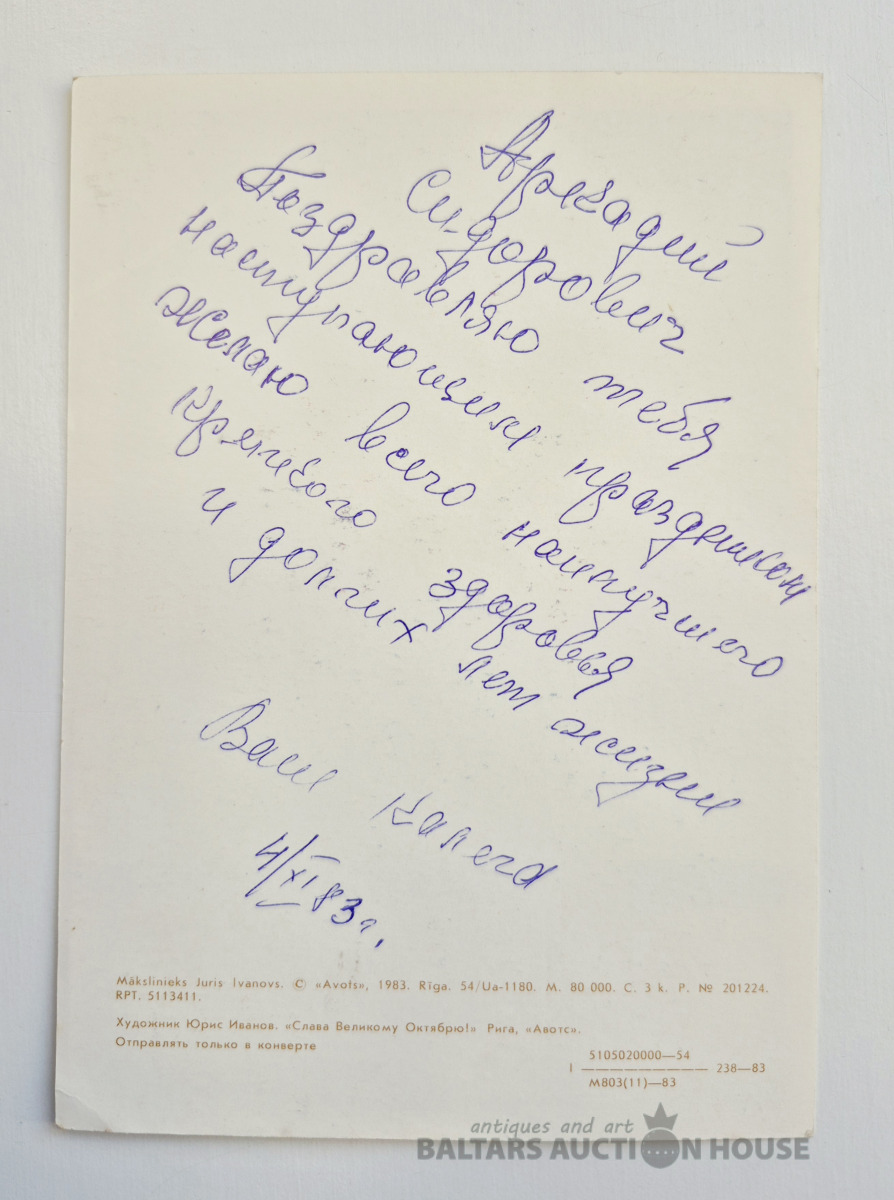 Аркадий
Сидорович
Поздравляю тебя
наступающим праздником
желаю всего наилучшего
крепкого здоровья
и долгих лет жизни
Ваш Калега
4/XI 83 г.
Mākslinieks Juris Ivanovs. © «Avots», 1983. Rīga. 54/Ua-1180. M. 80 000. C. 3 k. P. № 201224.
RPT. 5113411.
Художник Юрис Иванов. «Слава Великому Октябрю!» Рига, «Авотс».
Отправлять только в конверте
5105020000—54
I ——————— 238—83
М803(11)—83
antiques and art
BALTARS AUCTION HOUSE